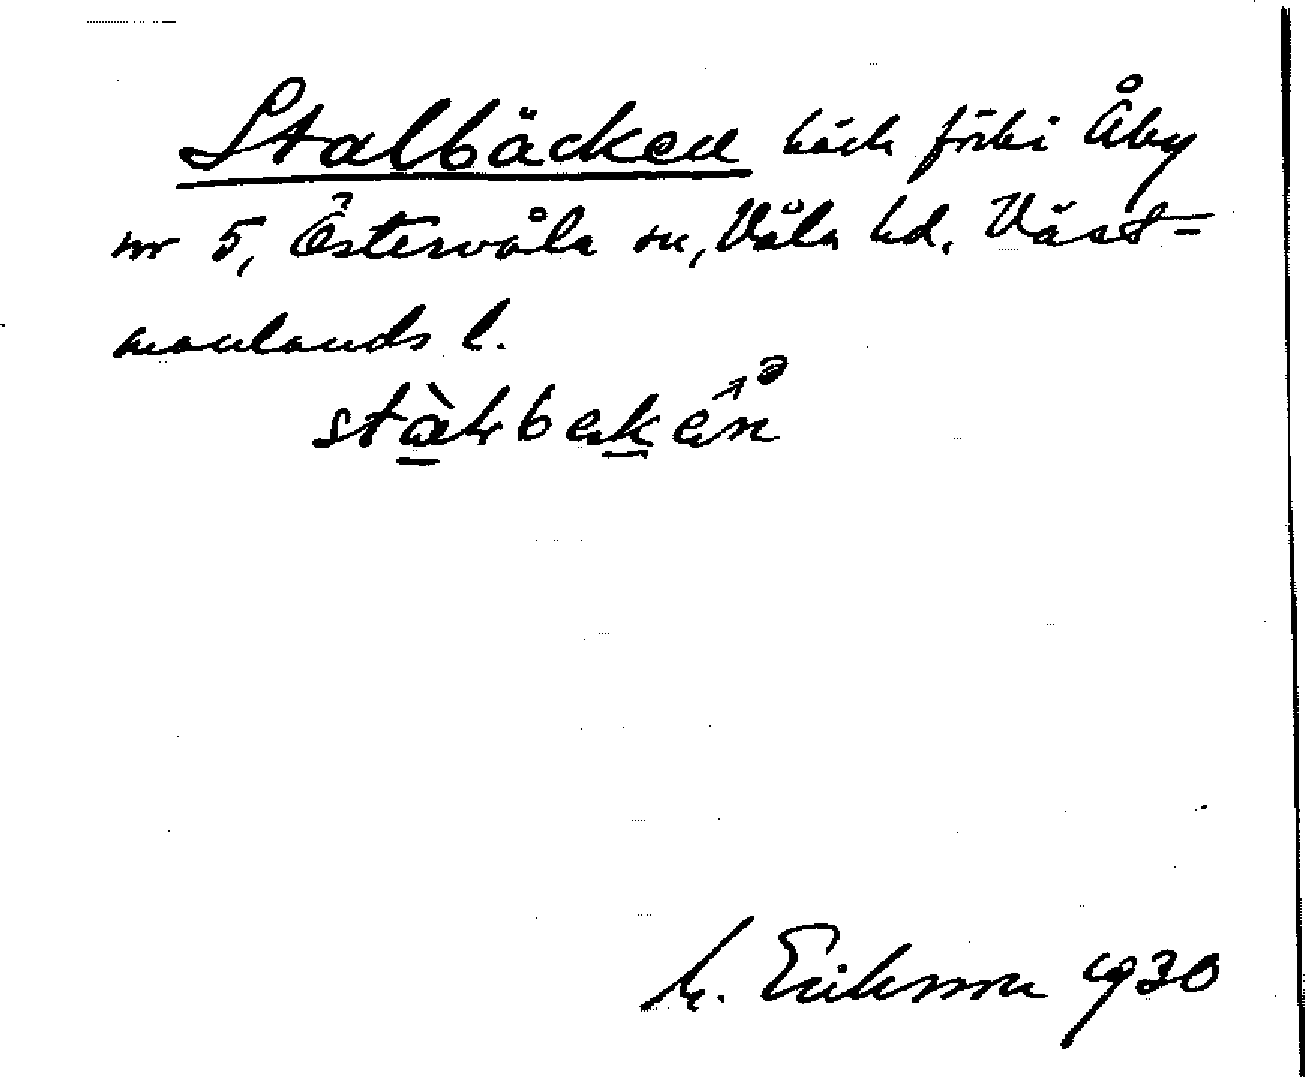 Stalbäcken bäck förbi Åby
nr 5, Östervåla sn, Våla hd, Väst-
manlands l.
M. Eriksson 1930